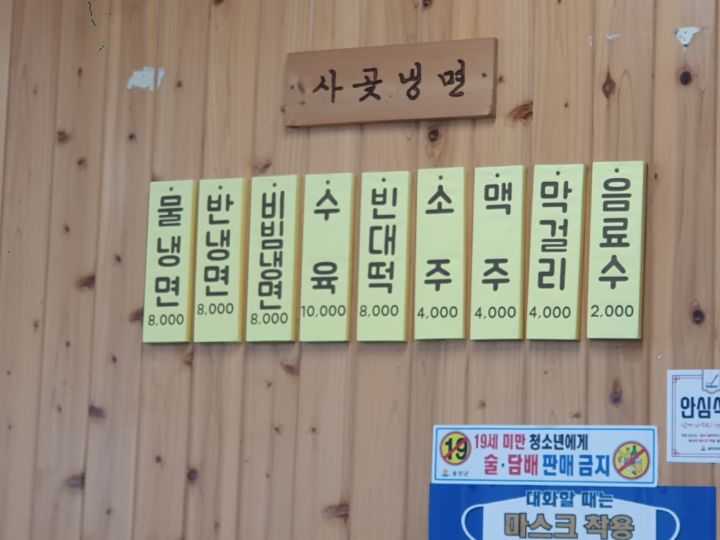 사곶냉면
물냉면
8,000
반냉면
8,000
비빔냉면
8,000
수육
10,000
빈대떡
8,000
소주
4,000
맥주
4,000
막걸리
4,000
음료수
2,000
안심식
19
19세 미만 청소년에게
술·담배 판매 금지
옹진군
대화할 때는
마스크 착용